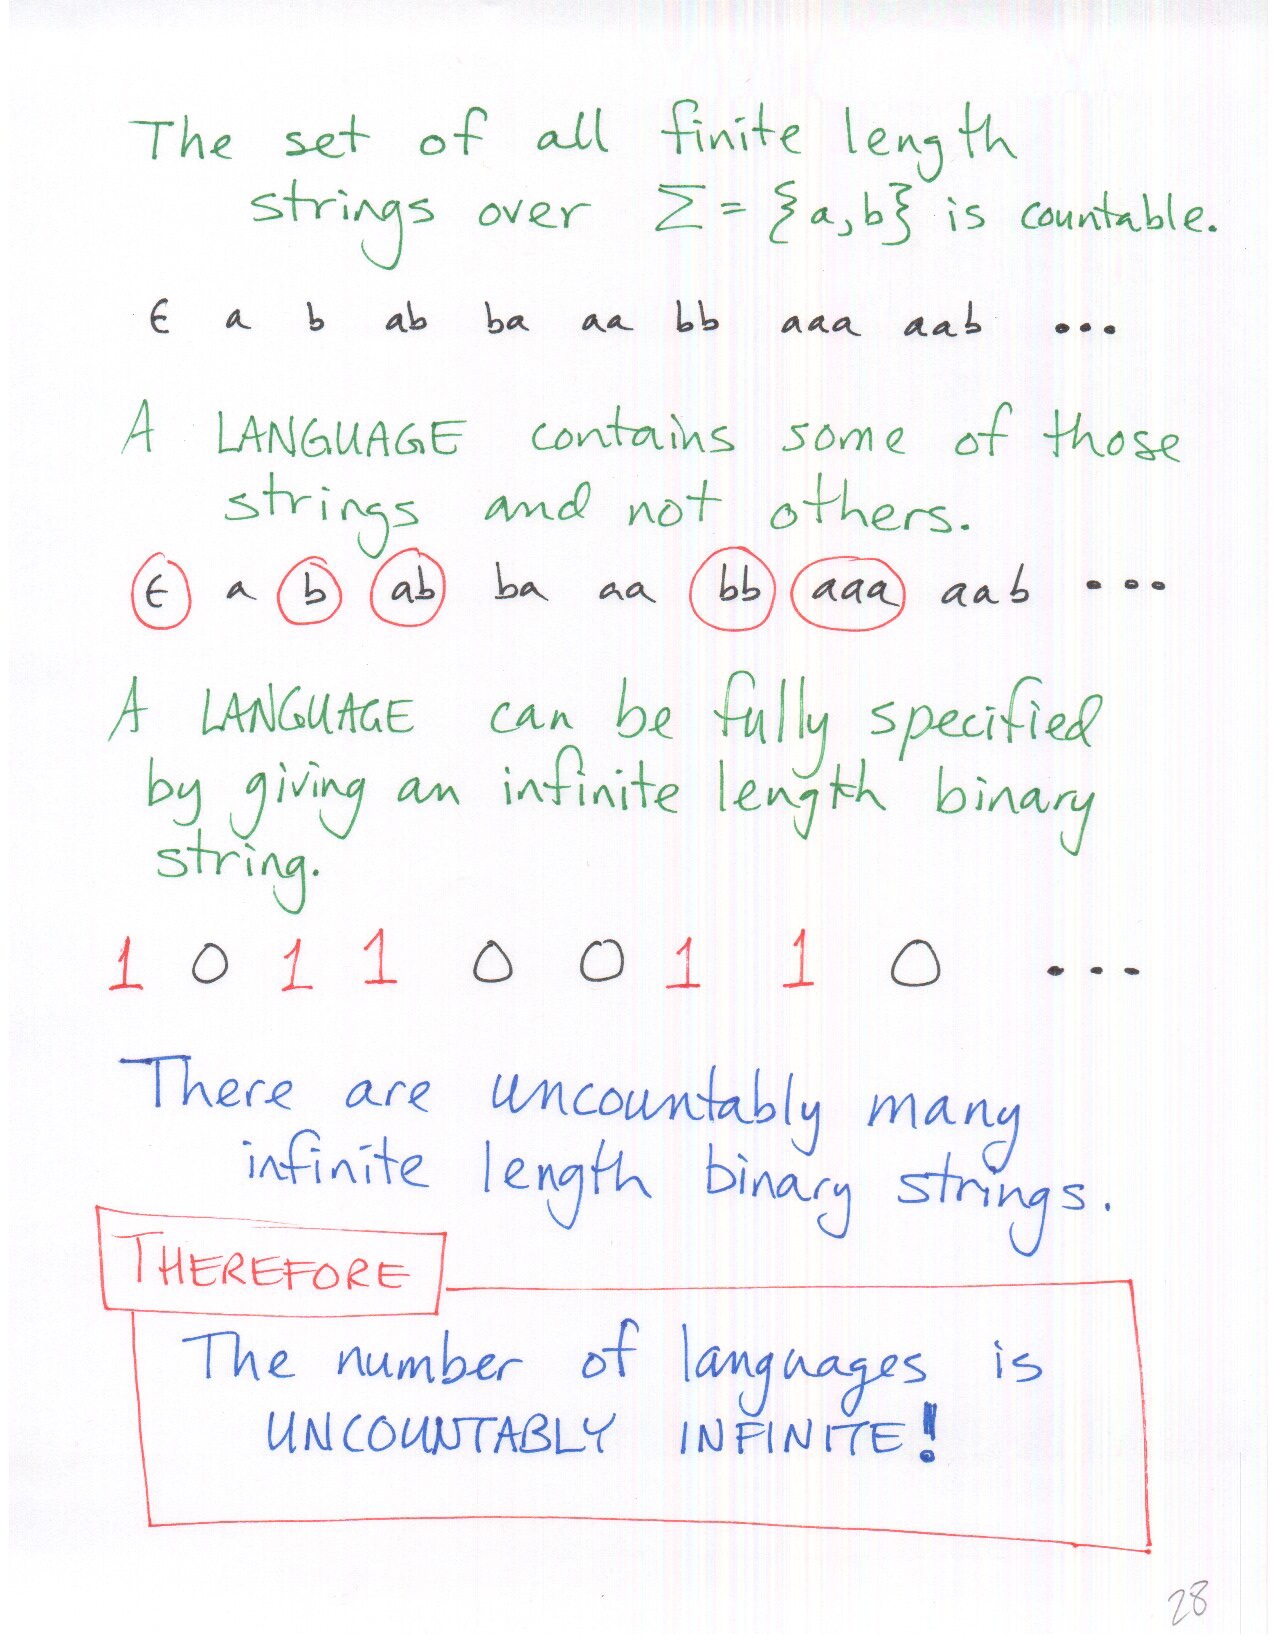 The set of all finite length
strings over Σ = {a, b} is countable.
ε a b ab ba aa bb aaa aab ...
A LANGUAGE contains some of those
strings and not others.
ε a b ab ba aa bb aaa aab ...
A LANGUAGE can be fully specified
by giving an infinite length binary
string.
1 0 1 1 0 0 1 1 0 ...
There are uncountably many
infinite length binary strings.
THEREFORE
The number of languages is
UNCOUNTABLY INFINITE!
28